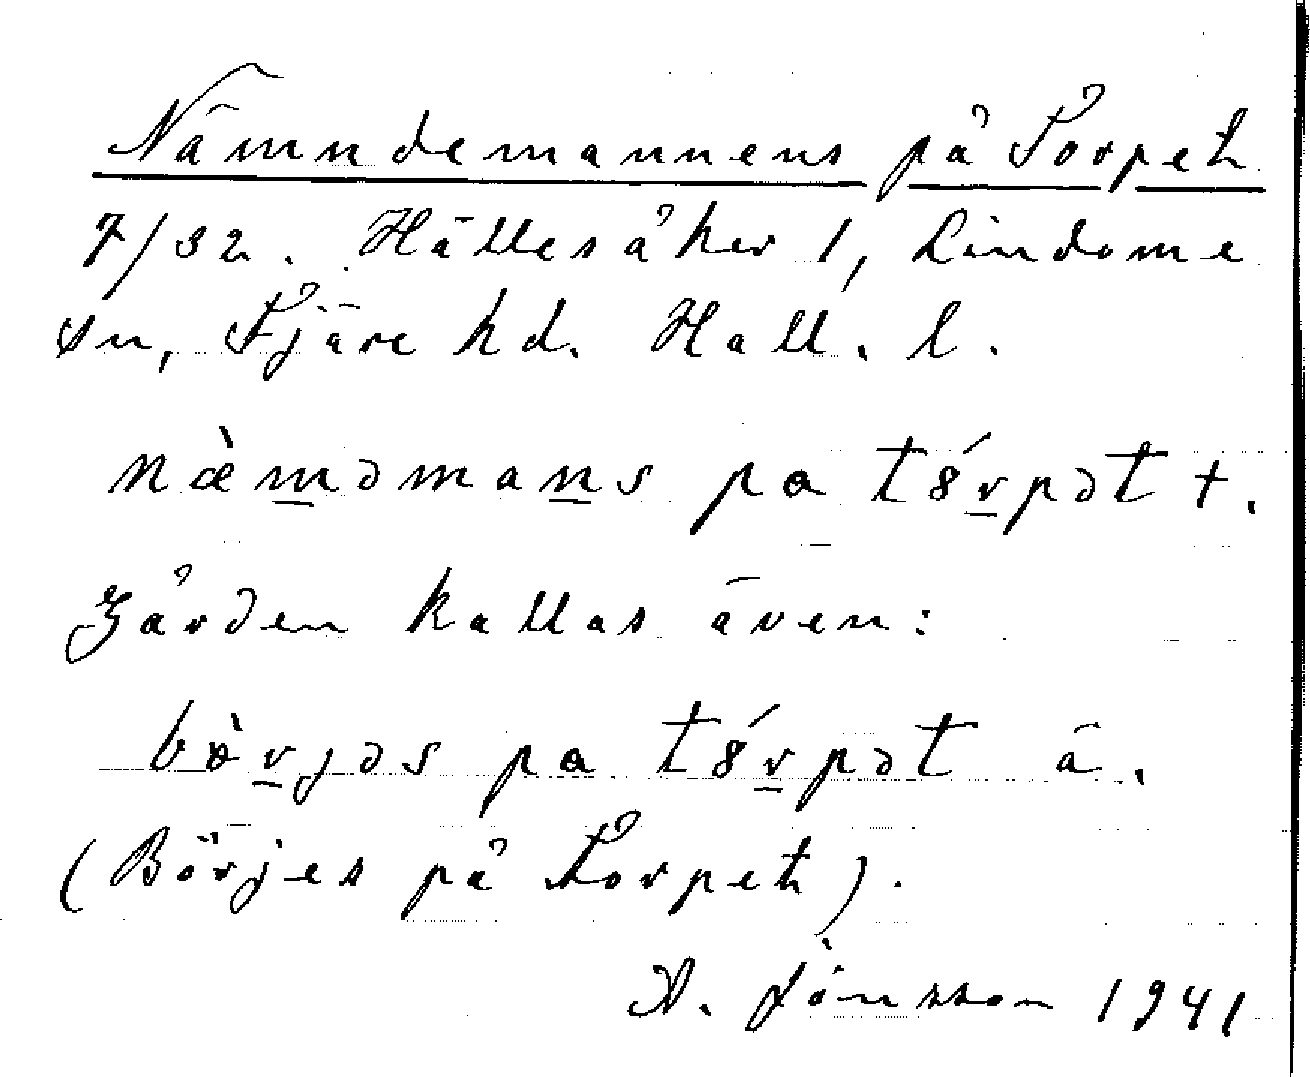 Nämndemannens på Torpet
7/32. Hällesåker 1, Lindome
sn, Fjäre hd. Hall. l.
næ̀m̲əmans̲ pa tȣ́r̲pət +.
Gården kallas även:
bø̀r̲jəs pa tȣ́r̲pət ä.
(Börjes på Torpet).
A. Jönsson 1941